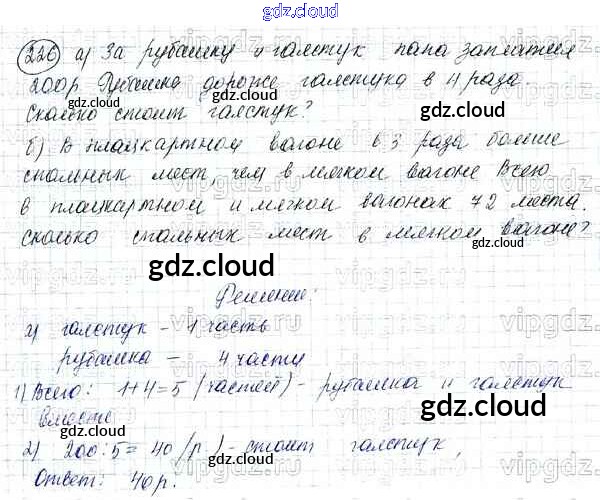 gdz.cloud
220 а) За рубашку и галстук папа заплатил
200р. Рубашка дороже галстука в 4 раза.
Сколько стоит галстук?
gdz.cloud gdz.cloud
б) В плацкартном вагоне в 3 раза больше
спальных мест, чем в мягком вагоне Всего
в плацкартном и мягком вагонах 72 места.
Сколько спальных мест в мягком вагоне?
gdz.cloud
Решение:
а) галстук – 1 часть
рубашка – 4 части
1) Всего: 1+4=5 (частей) - рубашка и галстук
вместе
2) 200:5=40 (р.) - стоит галстук,
Ответ: 40р.
gdz.cloud gdz.cloud